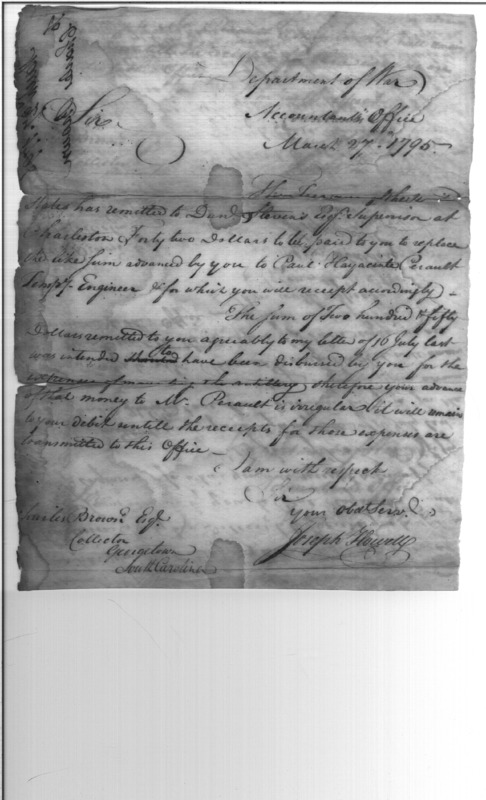 Department of War
Accountants Office
March 27. 1795.
Sir
The
States has remitted to Danl. Stevens Esqr. Supervisor at
Charleston Forty two Dollars to be paid to you to replace
the like Sum advanced by you to Paul Hayacinte Perault
Engineer & for which you will receipt accordingly –
The Sum of Two hundred & fifty
Dollars remitted to you agreeably to my letter of 16 July last
was intended to have been disbursed by you for the
artillery, therefore your advance
of that money to Mr. Perault is irregular & it will remain
to your debit untill the receipts for those expenses are
transmitted to this Office –
I am with respect
Sir
your obd Serv.
Joseph Howell
Brown Esqr.
Collector
Georgetown
South Carolina